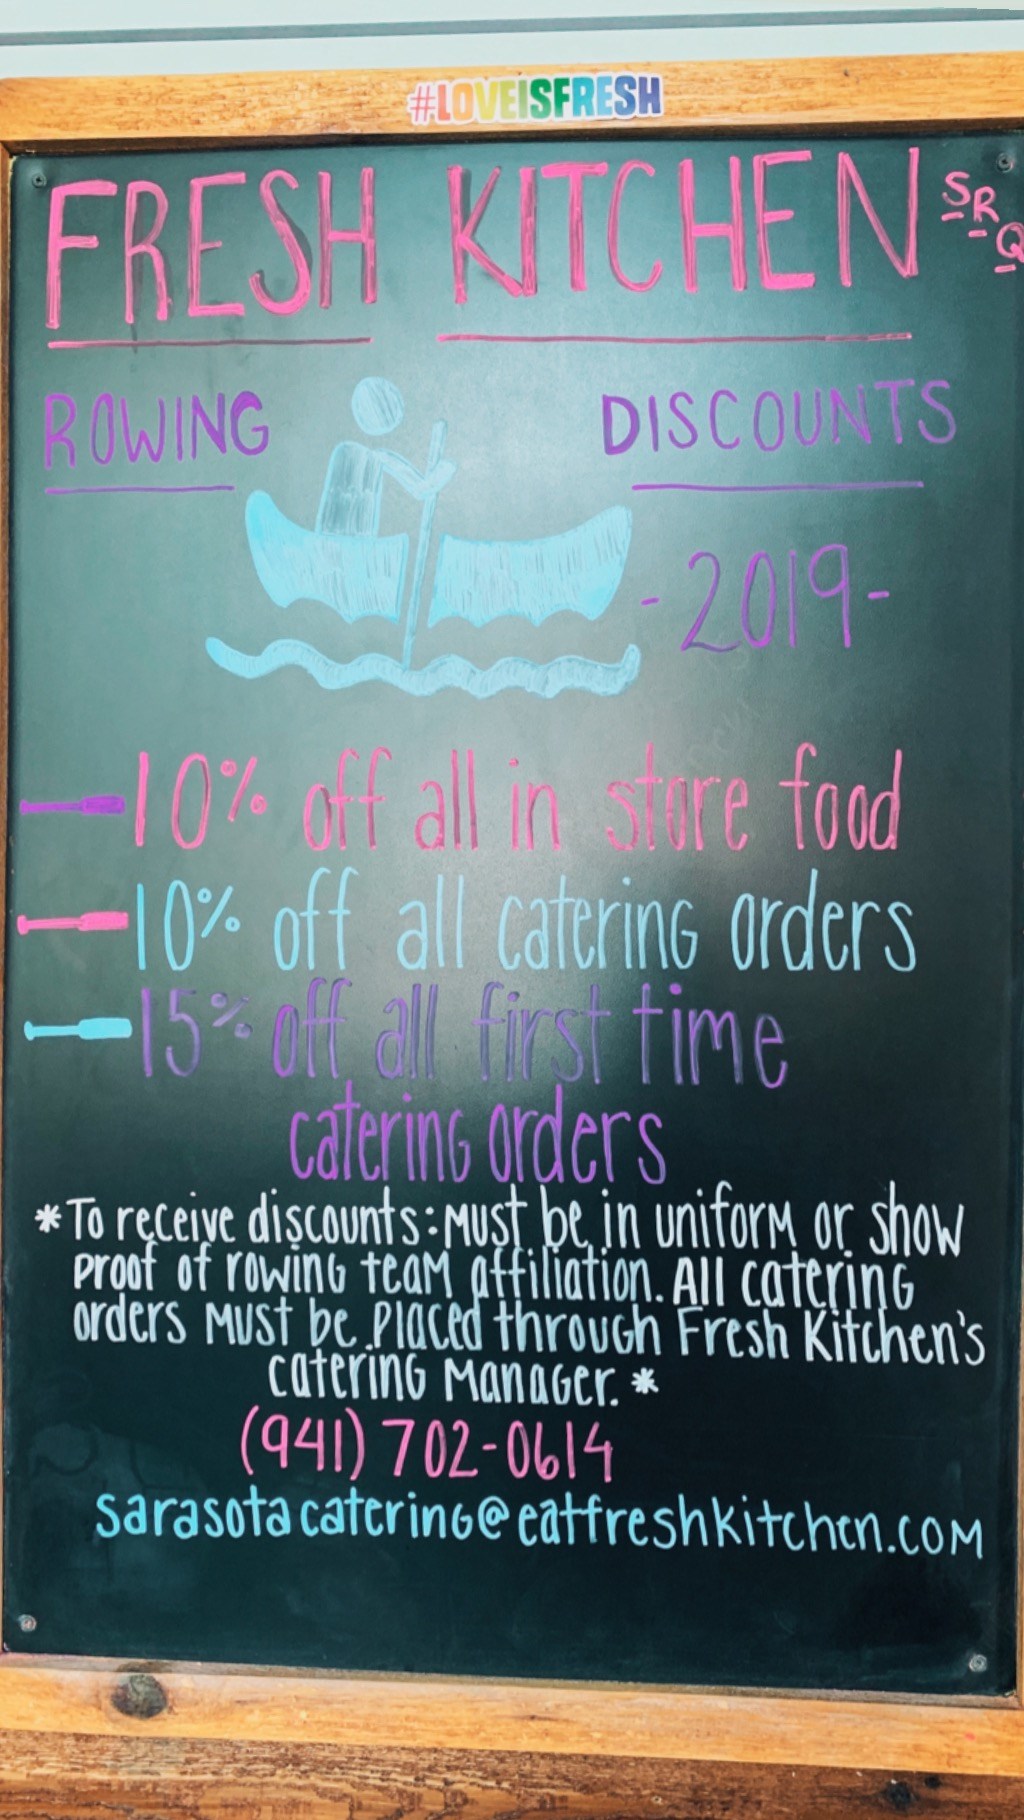 #LOVEISFRESH
FRESH KITCHEN SRQ
ROWING DISCOUNTS
-2019-
10% off all in store food
10% off all catering orders
15% off all first time
catering orders
*To receive discounts: Must be in uniform or show
proof of rowing team affiliation. All catering
orders Must be placed through Fresh Kitchen's
catering Manager.*
(941) 702-0614
sarasotacatering@eatfreshkitchen.com